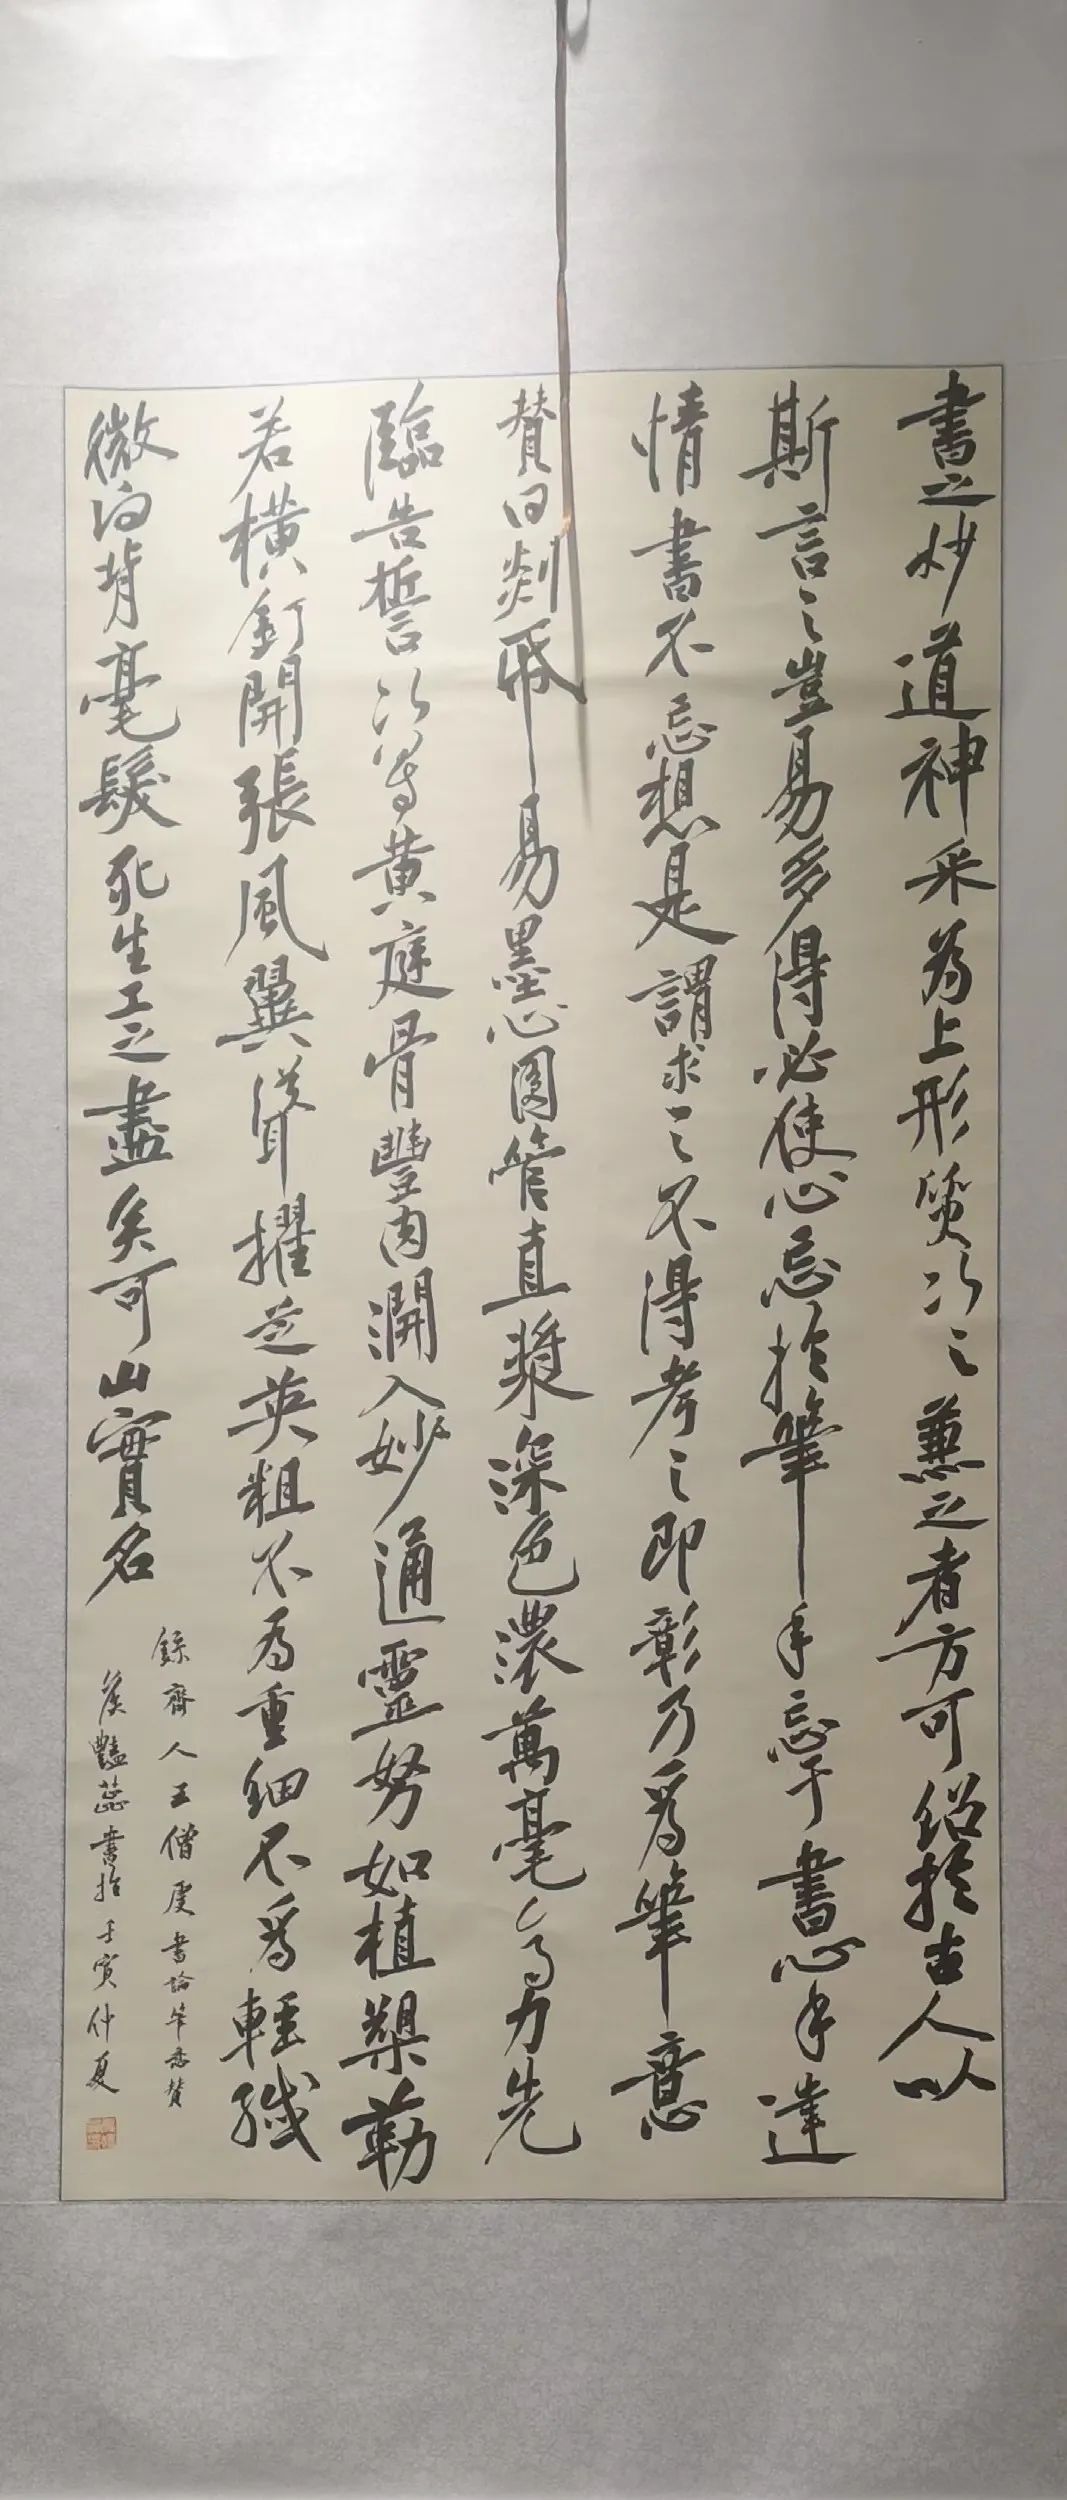 書之妙道神采為上形質次之兼之者方可紹於古人以
斯言之豈易多得必使心忘於筆手忘于書心手達
情書不忘想是謂求之不得考之即彰乃為筆意
贊曰剡紙易墨心圓管直漿深色濃萬毫齊力先
臨告誓次寫黃庭骨豐肉潤入妙通靈努如植槊勒
若橫釘開張風翼聳擢芝英粗不為重細不為輕纖
微向背毫髮死生工之盡矣可擅實名
錄齊人王僧虔書論筆意贊
侯艷蕊書於壬寅仲夏